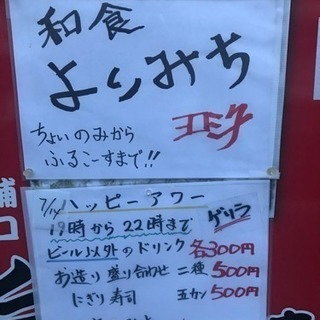 和食
よりみち
ちょいのみから
ふるこーすまで!!
7/14 ハッピーアワー
19時から22時まで
ゲリラ
ビール以外のドリンク 各300円
お造り盛り合わせ 二種 500円
にぎり寿司 五カン 500円